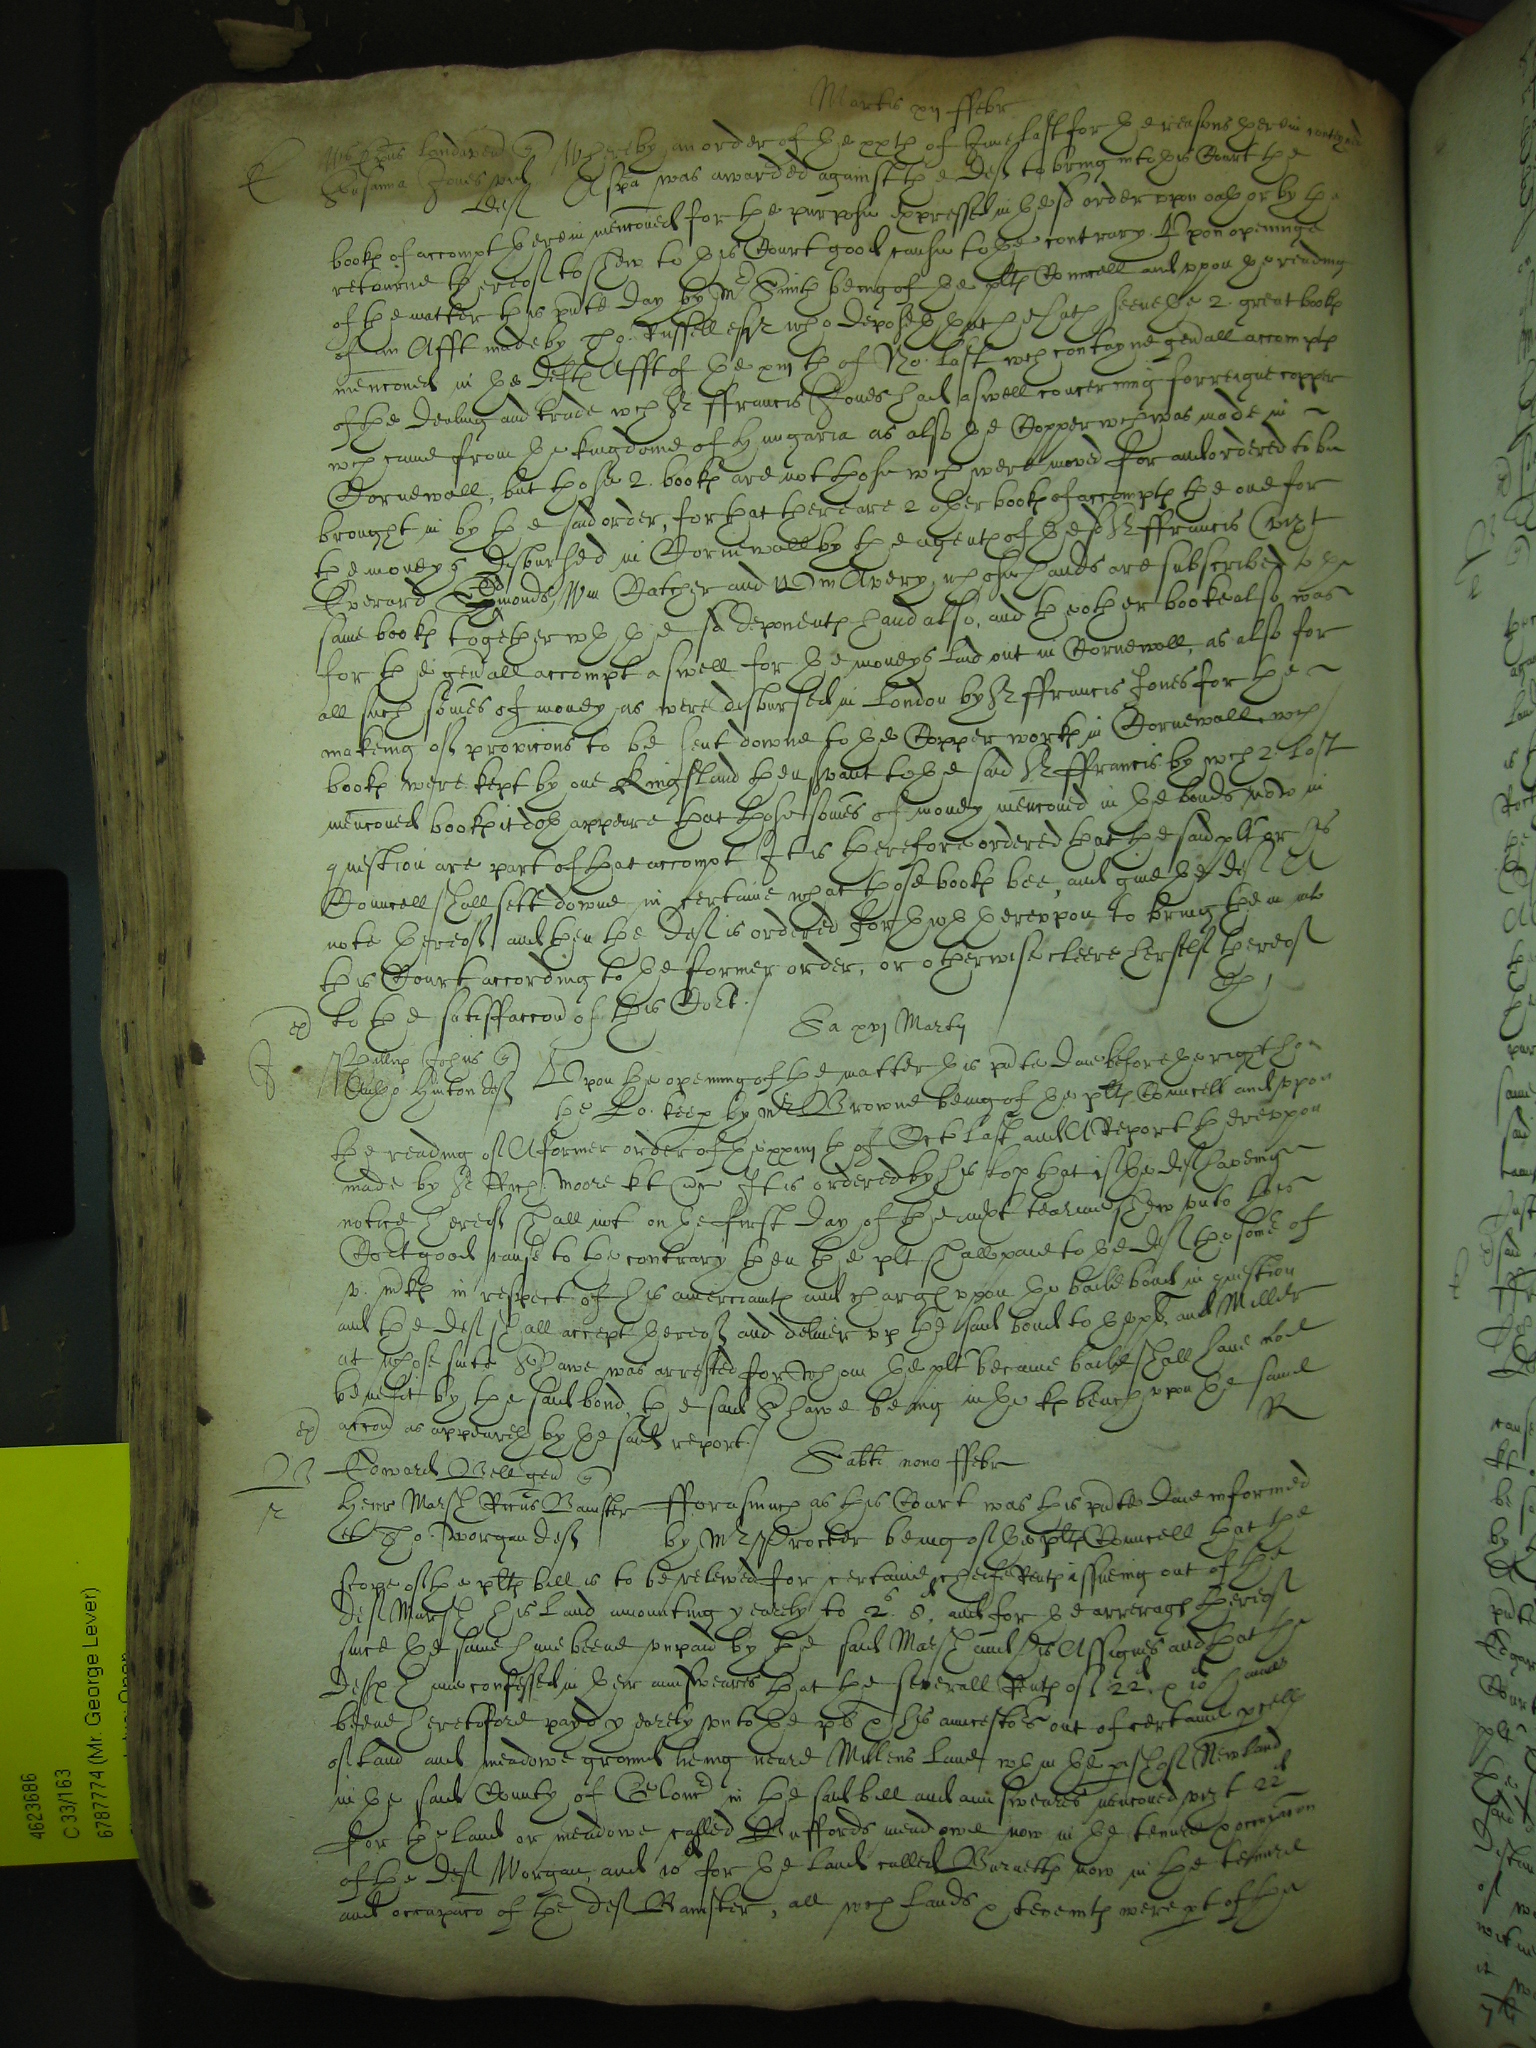 Martis xij ffebr
Susanna Jones vid
Deft
Whereby an order of the xxth of June last for the reasons therein conteyned
A spa was awarded against the Deft to bring into this Court the
book of accompt therein menconed for the purpose expressed in the sd order upon oath or by the
retourne thereof to shew to this Court good cause to the contrary. Upon openinge
of the matter this pnte day by Mr Smith being of the plts Councell and uppon the reading
of an Afft made by Tho: Russell esqr who deposeth that he hath seene the 2. great books
menconed in the Defts Afft of the xiijth of No: last wch contayne genall accompts
of the dealing and trade wch Sr ffrancis Jones had aswell concerning forreigne copper
wch came from the kingdome of Hungaria as also the Copper wch was made in
Cornewall, but those 2. books are not those wch were moved for and ordered to be
brought in by the said order, for that there are 2 other books of accompts the one for
the moneys disbursed in Cornewall by the agents of the sd Sr ffrancis (vizt
Everard Edmonds, Wm Catcher and Wm Avery, whose hands are subscribed to the
same books together wth the sd deponents hand also, and the other booke also was
for the genall accompt aswell for the moneys laid out in Cornewall, as also for
all such somes of money as were disbursed in London by Sr ffrancis Jones for the
makeing of provicons to be sent downe to the Copper works in Cornewall wch
books were kept by one Kingsland then svant to the said Sr ffrancis by wch 2. last
menconed books it doth appeare that those somes of money menconed in the bonds now in
question are part of that accompt It is therefore ordered that the said plt or his
Councell shall sett downe in certaine what those books bee, and give the deft A
note thereof and then the Deft is ordered forthwth thereupon to bring them into
this Court according to the former order, or otherwise cleere herself thereof
to the satisffaccon of this Cort.
Sa xvj Martij
Phillip Johns
Hinton deft
Upon the opening of the matter this pnte daie before the right ho
the Lo: keep by Mr Browne being of the plts Councell and upon
the reading of A former order of the xxiiijth of Octo last and A Report thereuppon
made by Sr Rich: Moore kt &c It is ordered by his lop that if the deft haveing
notice hereof shall not on the first day of the next tearme shew unto this
Cort good cause to the contrary then the plt shall paie to the deft the some of
v. mks in respect of his amerciamts and charges upon the baile bond in question
and the deft shall accept thereof and deliver up the said bond to the plt, and Miller
at whose suite Shawe was arrested for whom the plt became baile shall have noe
benefit by the said bond, the said Shawe being in the ks bench upon the same
accon as appeareth by the said report.
R
Sabti nono ffebr
Edward Bell gen
Herr Marsh Ricus Banister
et Tho: Morgan deft
fforasmuch as this Court was this pnte daie informed
by Mr Procter being of the plts Councell that the
scope of the plts bill is to be releived for certaine cheife Rents issueing out of the
deft Marsh his land amounting yearely to 2s. 8d, and for the arrerages thereof
since the same have beene unpaid by the said Marsh and his Assignes and that the
defts have confessed in their answeares that the severall Rents of 22d & 10d have
beene heretofore payd yearely unto the plt & his auncestors out of certaine pcells
of land and meadowe ground lieing neare Millens land wthin the pish of Newland
in the said County of Glouc in the said bill and answeares menconed vizt 22d
for the land or meadowe called Buffords meadowe now in the tenure & occupacon
of the deft Morgan, and 10d for the land called Burnetts now in the tenure
and occupacon of the deft Banister, all wch lands & tenemts were pt of the
4623686
C 33/163
6787774 (Mr. George Lever)